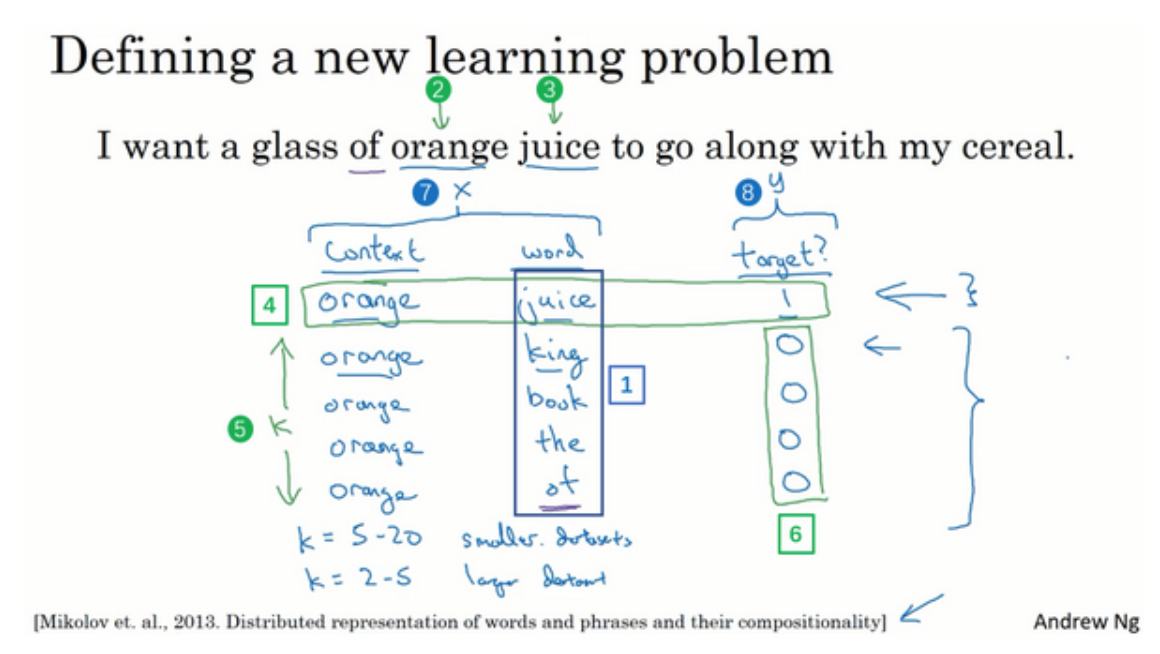 Defining a new learning problem
2 3
I want a glass of orange juice to go along with my cereal.
7 x 8 y
Context word target?
4 orange juice 1
orange king 0
1
orange book 0
5 k
orange the 0
orange of 0
6
k = 5-20 smaller datasets
k = 2-5 larger dataset
[Mikolov et. al., 2013. Distributed representation of words and phrases and their compositionality]
Andrew Ng